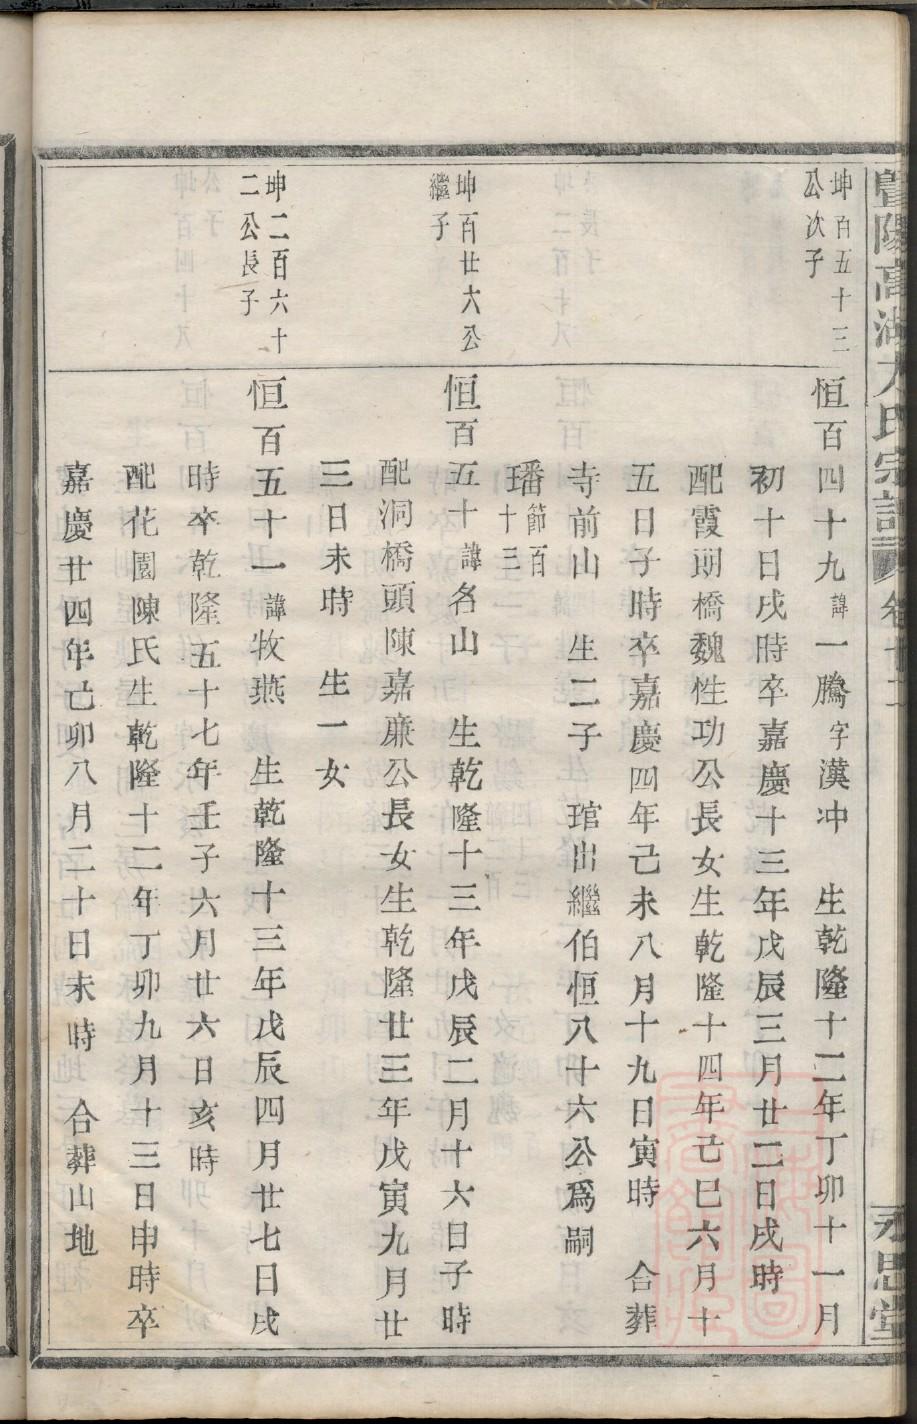 暨陽高湖方氏宗譜 卷十二 永思堂
坤百五十三
公次子
恒百四十九諱一騰字漢冲 生乾隆十二年丁卯十一月
初十日戌時卒嘉慶十三年戊辰三月廿二日戌時
配霞期橋魏性功公長女生乾隆十四年己巳六月十
五日子時卒嘉慶四年己未八月十九日寅時 合葬
寺前山 生二子 琯出繼伯恒八十六公爲嗣
璠節百
十三
坤百廿六公
繼子
恒百五十諱名山 生乾隆十三年戊辰二月十六日子時
配洞橋頭陳嘉亷公長女生乾隆廿三年戊寅九月廿
三日未時 生一女
坤二百六十
二公長子
恒百五十一諱牧燕 生乾隆十三年戊辰四月廿七日戌
時卒乾隆五十七年壬子六月廿六日亥時
配花園陳氏生乾隆十二年丁卯九月十三日申時卒
嘉慶廿四年己卯八月二十日未時 合葬山地